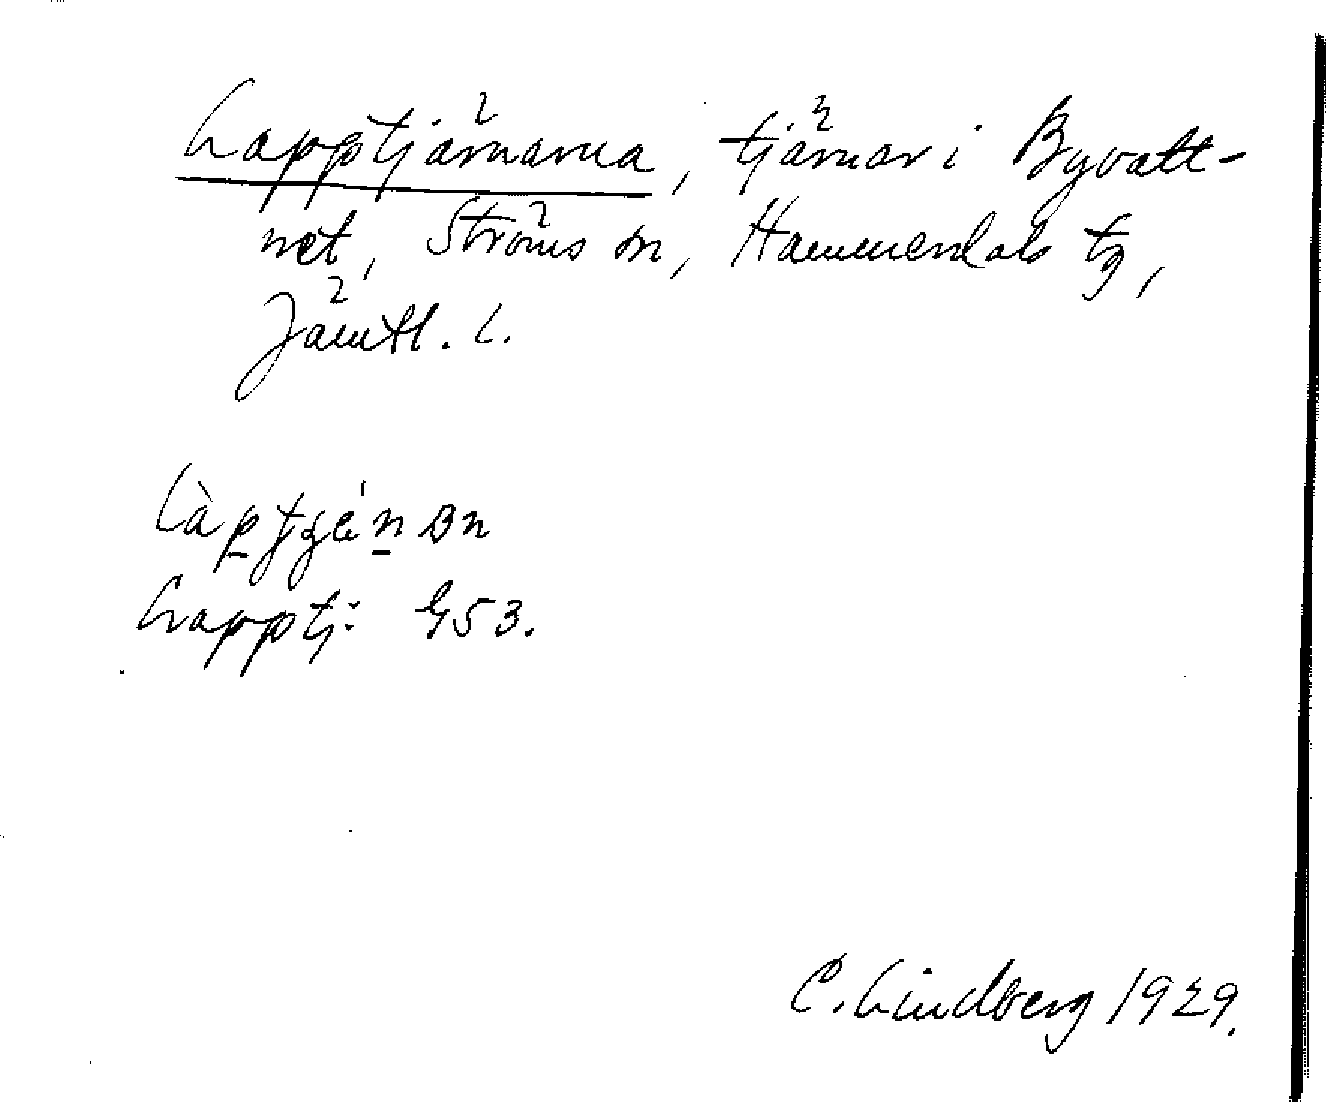 Lapptjärnarna, tjärnar i Byvatt-
net, Ströms sn, Hammerdals tg,
Jämtl. l.
Lapptj: G53.
C. Lindberg 1929.